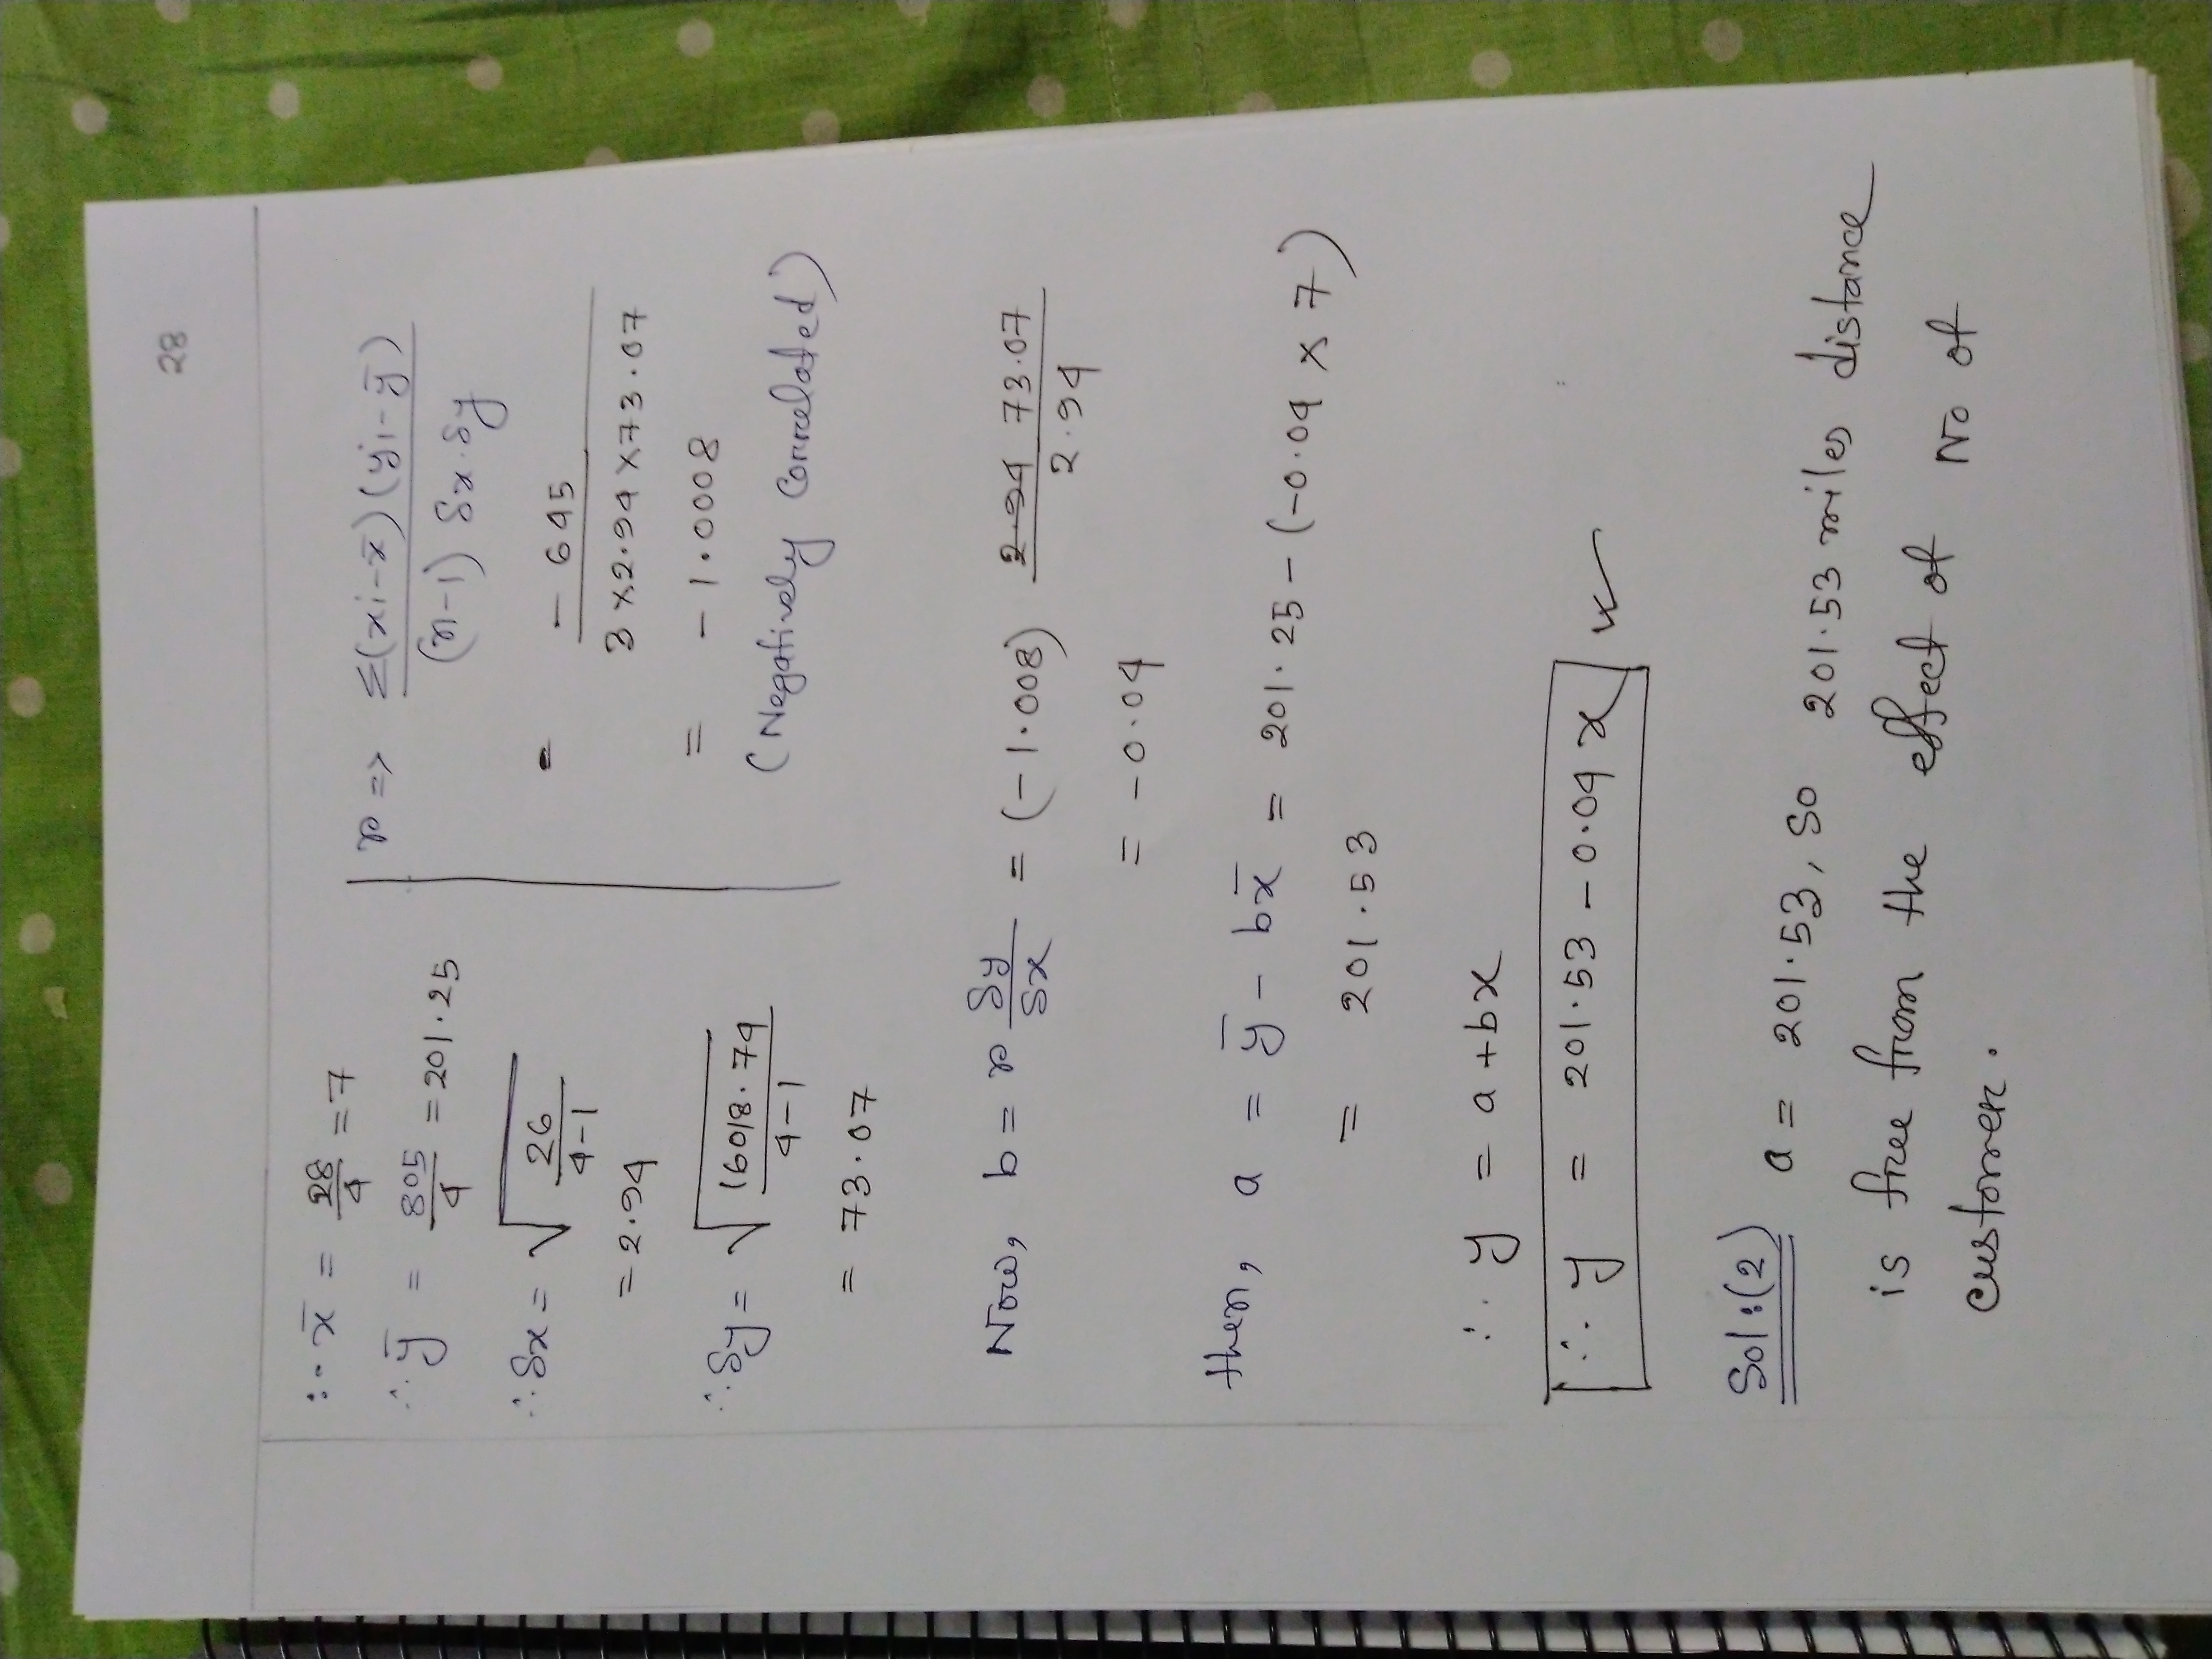 28
∴ x̄ = 28/4 = 7
∴ ȳ = 805/4 = 201.25
∴ Sx = √(26/(4-1))
= 2.94
∴ Sy = √(16018.74/(4-1))
= 73.07
r => Σ(xi-x̄)(yi-ȳ)/((n-1) Sx.Sy)
= -645/(3×2.94×73.07)
= -1.0008
(Negatively Correlated)
Now, b = r Sy/Sx = (-1.008) 73.07/2.94
= -0.04
then, a = ȳ - bx̄ = 201.25 - (-0.04 × 7)
= 201.53
∴ y = a+bx
∴ y = 201.53 - 0.04x
Sol:(2) a = 201.53, So 201.53 miles distance
is free from the effect of No of
customer.